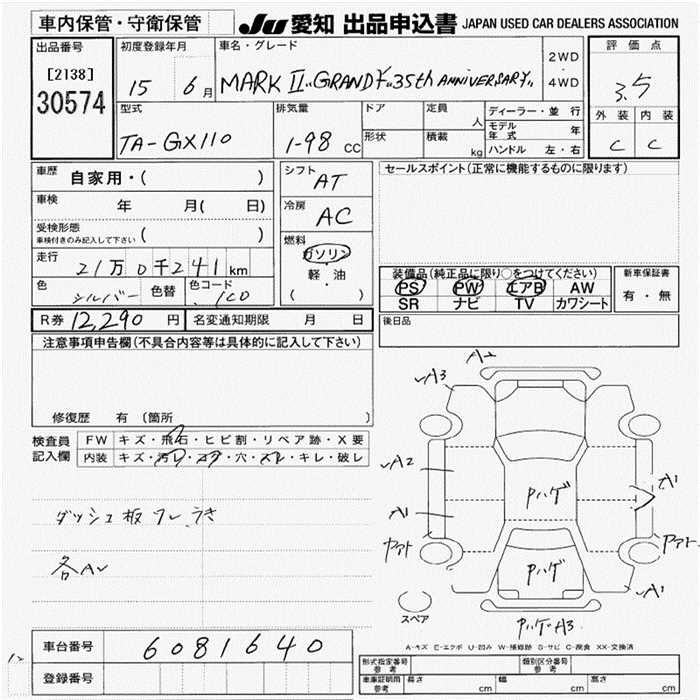 車内保管・守衛保管
JU 愛知 出品申込書 JAPAN USED CAR DEALERS ASSOCIATION
出品番号
[2138]
30574
初度登録年月
15 6月
車名・グレード
MARK II "GRANDE" 35th ANNIVERSARY"
2WD
・
4WD
評価点
3.5
外装 内装
C C
型式
TA-GX110
排気量
1-98 CC
ドア
形状
定員
人
積載
kg
ディーラー・並行
モデル年式 年
ハンドル 左・右
車歴
自家用・( )
車検
年 月( 日)
受検形態
車検付きのみ記入して下さい ( )
走行
21万0千241km
色
シルバー
色替
色コード
1C0
シフト
AT
冷房
AC
燃料
ガソリン
軽・油
( ・ )
セールスポイント(正常に機能するものに限ります)
装備品(純正品に限り○をつけてください)
PS PW エアB AW
SR ナビ TV カワシート
新車保証書
有・無
R券 12,290 円
名変通知期限 月 日
後日品
注意事項申告欄(不具合内容等は具体的に記入して下さい)
修復歴 有 (箇所
検査員記入欄
FW キズ・飛石・ヒビ割・リペア跡・X要
内装 キズ・汚レ・コゲ・穴・スレ・キレ・破レ
ダッシュ板 ワレ,うき
各Aレ
A2
A3
A2
A1
ヤマアト
Pハゲ
Pハゲ
A1
ヤマアト
A1
スペア
Pハゲ・A3
A-キズ E-エクボ U-凹み W-補修跡 S-サビ C-腐食 XX-交換済
車台番号
6081640
登録番号
形式指定番号
参考
類別区分番号
参考
車庫証明用
参考
長さ cm
幅 cm
高さ cm